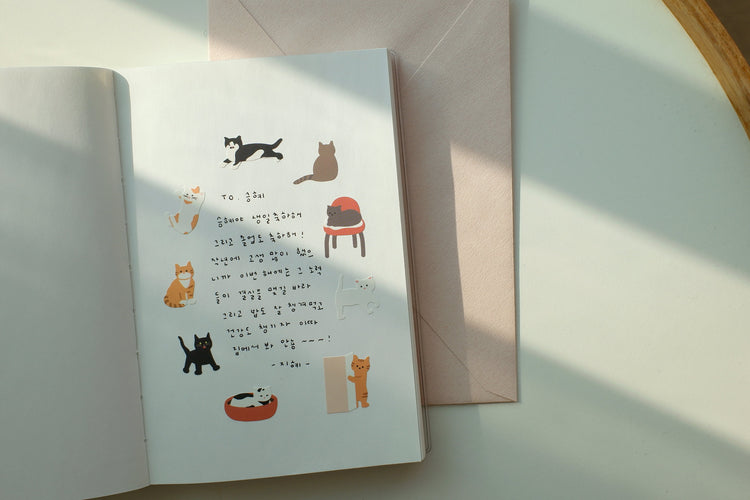 TO. 승혜
승혜야 생일축하해
그리고 졸업도 축하해!
작년에 고생 많이 했으
니까 이번 해에는 그 노력
들이 결실을 맺길 바라
그리고 밥도 잘 챙겨먹고
건강도 챙기자 이따
집에서 봐 안농 ~~~!
- 지혜 -